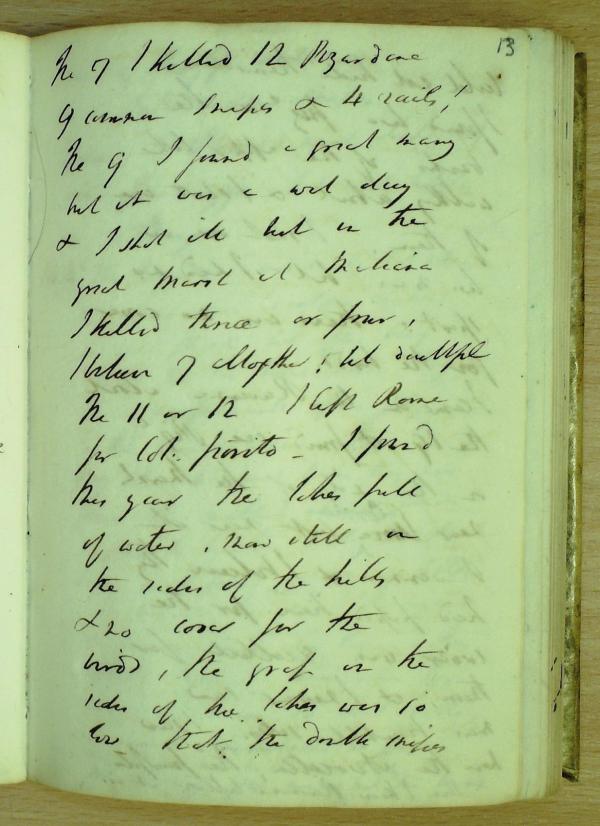 13
The 7 I killed 12 
9 common snipes & 4 rails!
The 9 I found a great many
but it was a wet day
& I shot ill but in the
great marsh at
I killed three or four,
I believe 7 altogether; but doubtful
The 11 or 12 I left Rome
for Col. fiorito - I found
this year the lakes full
of water, snow still on
the sides of the hills
& no cover for the
birds, the grass on the
sides of the lakes was so
low that the double snipes